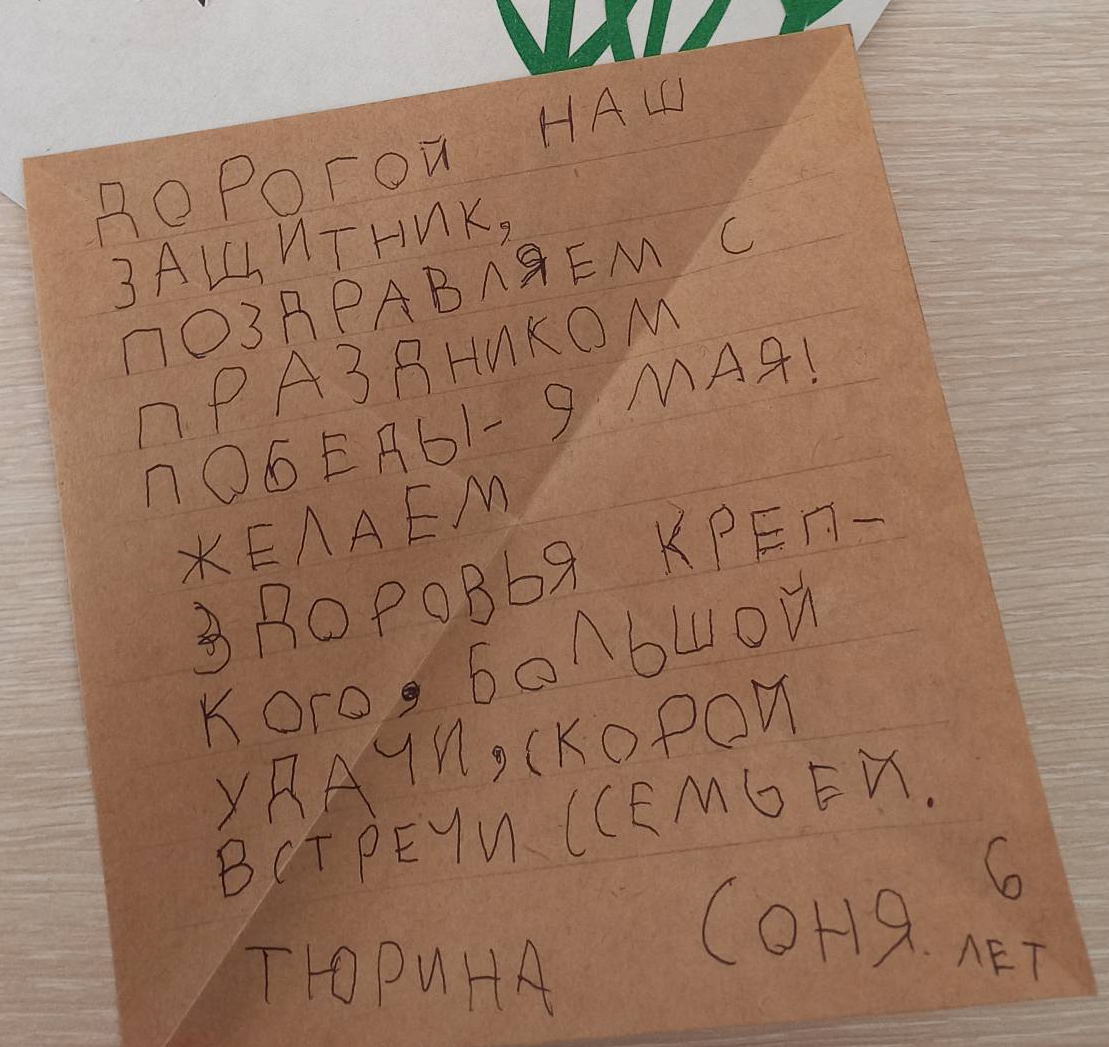 ДОРОГОЙ НАШ
ЗАЩИТНИК,
ПОЗДРАВЛЯЕМ С
ПРАЗДНИКОМ
ПОБЕДЫ- 9 МАЯ!
ЖЕЛАЕМ
ЗДОРОВЬЯ КРЕП-
КОГО, БОЛЬШОЙ
УДАЧИ, СКОРОЙ
ВСТРЕЧИ ССЕМЬЕЙ.
ТЮРИНА СОНЯ. 6 ЛЕТ